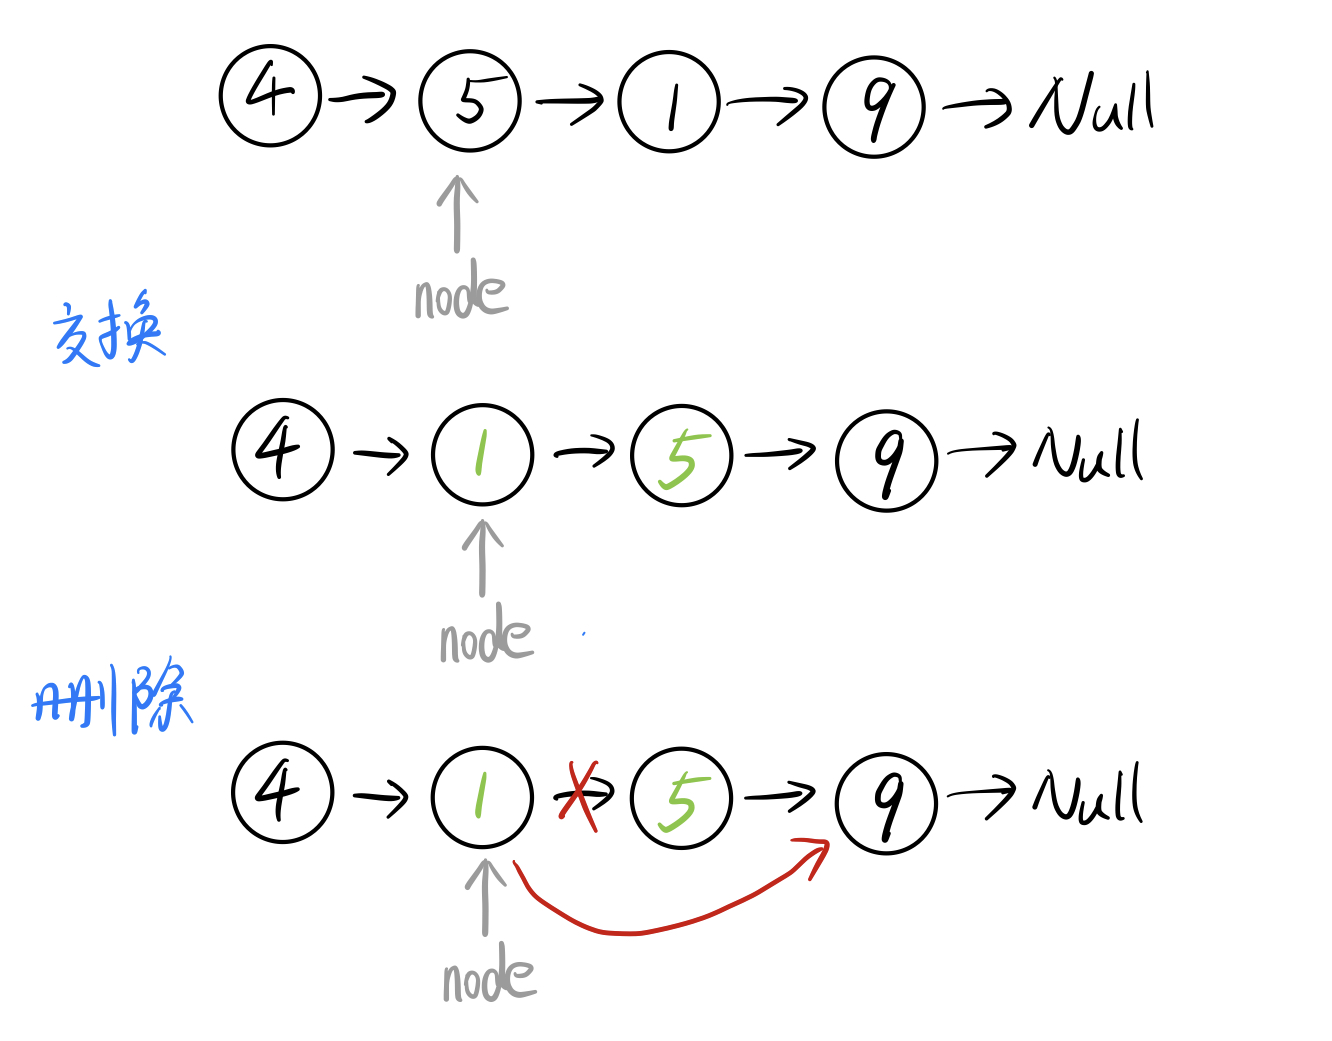 4 → 5 → 1 → 9 → Null
node
交换
4 → 1 → 5 → 9 → Null
node
删除
4 → 1 → 5 → 9 → Null
node